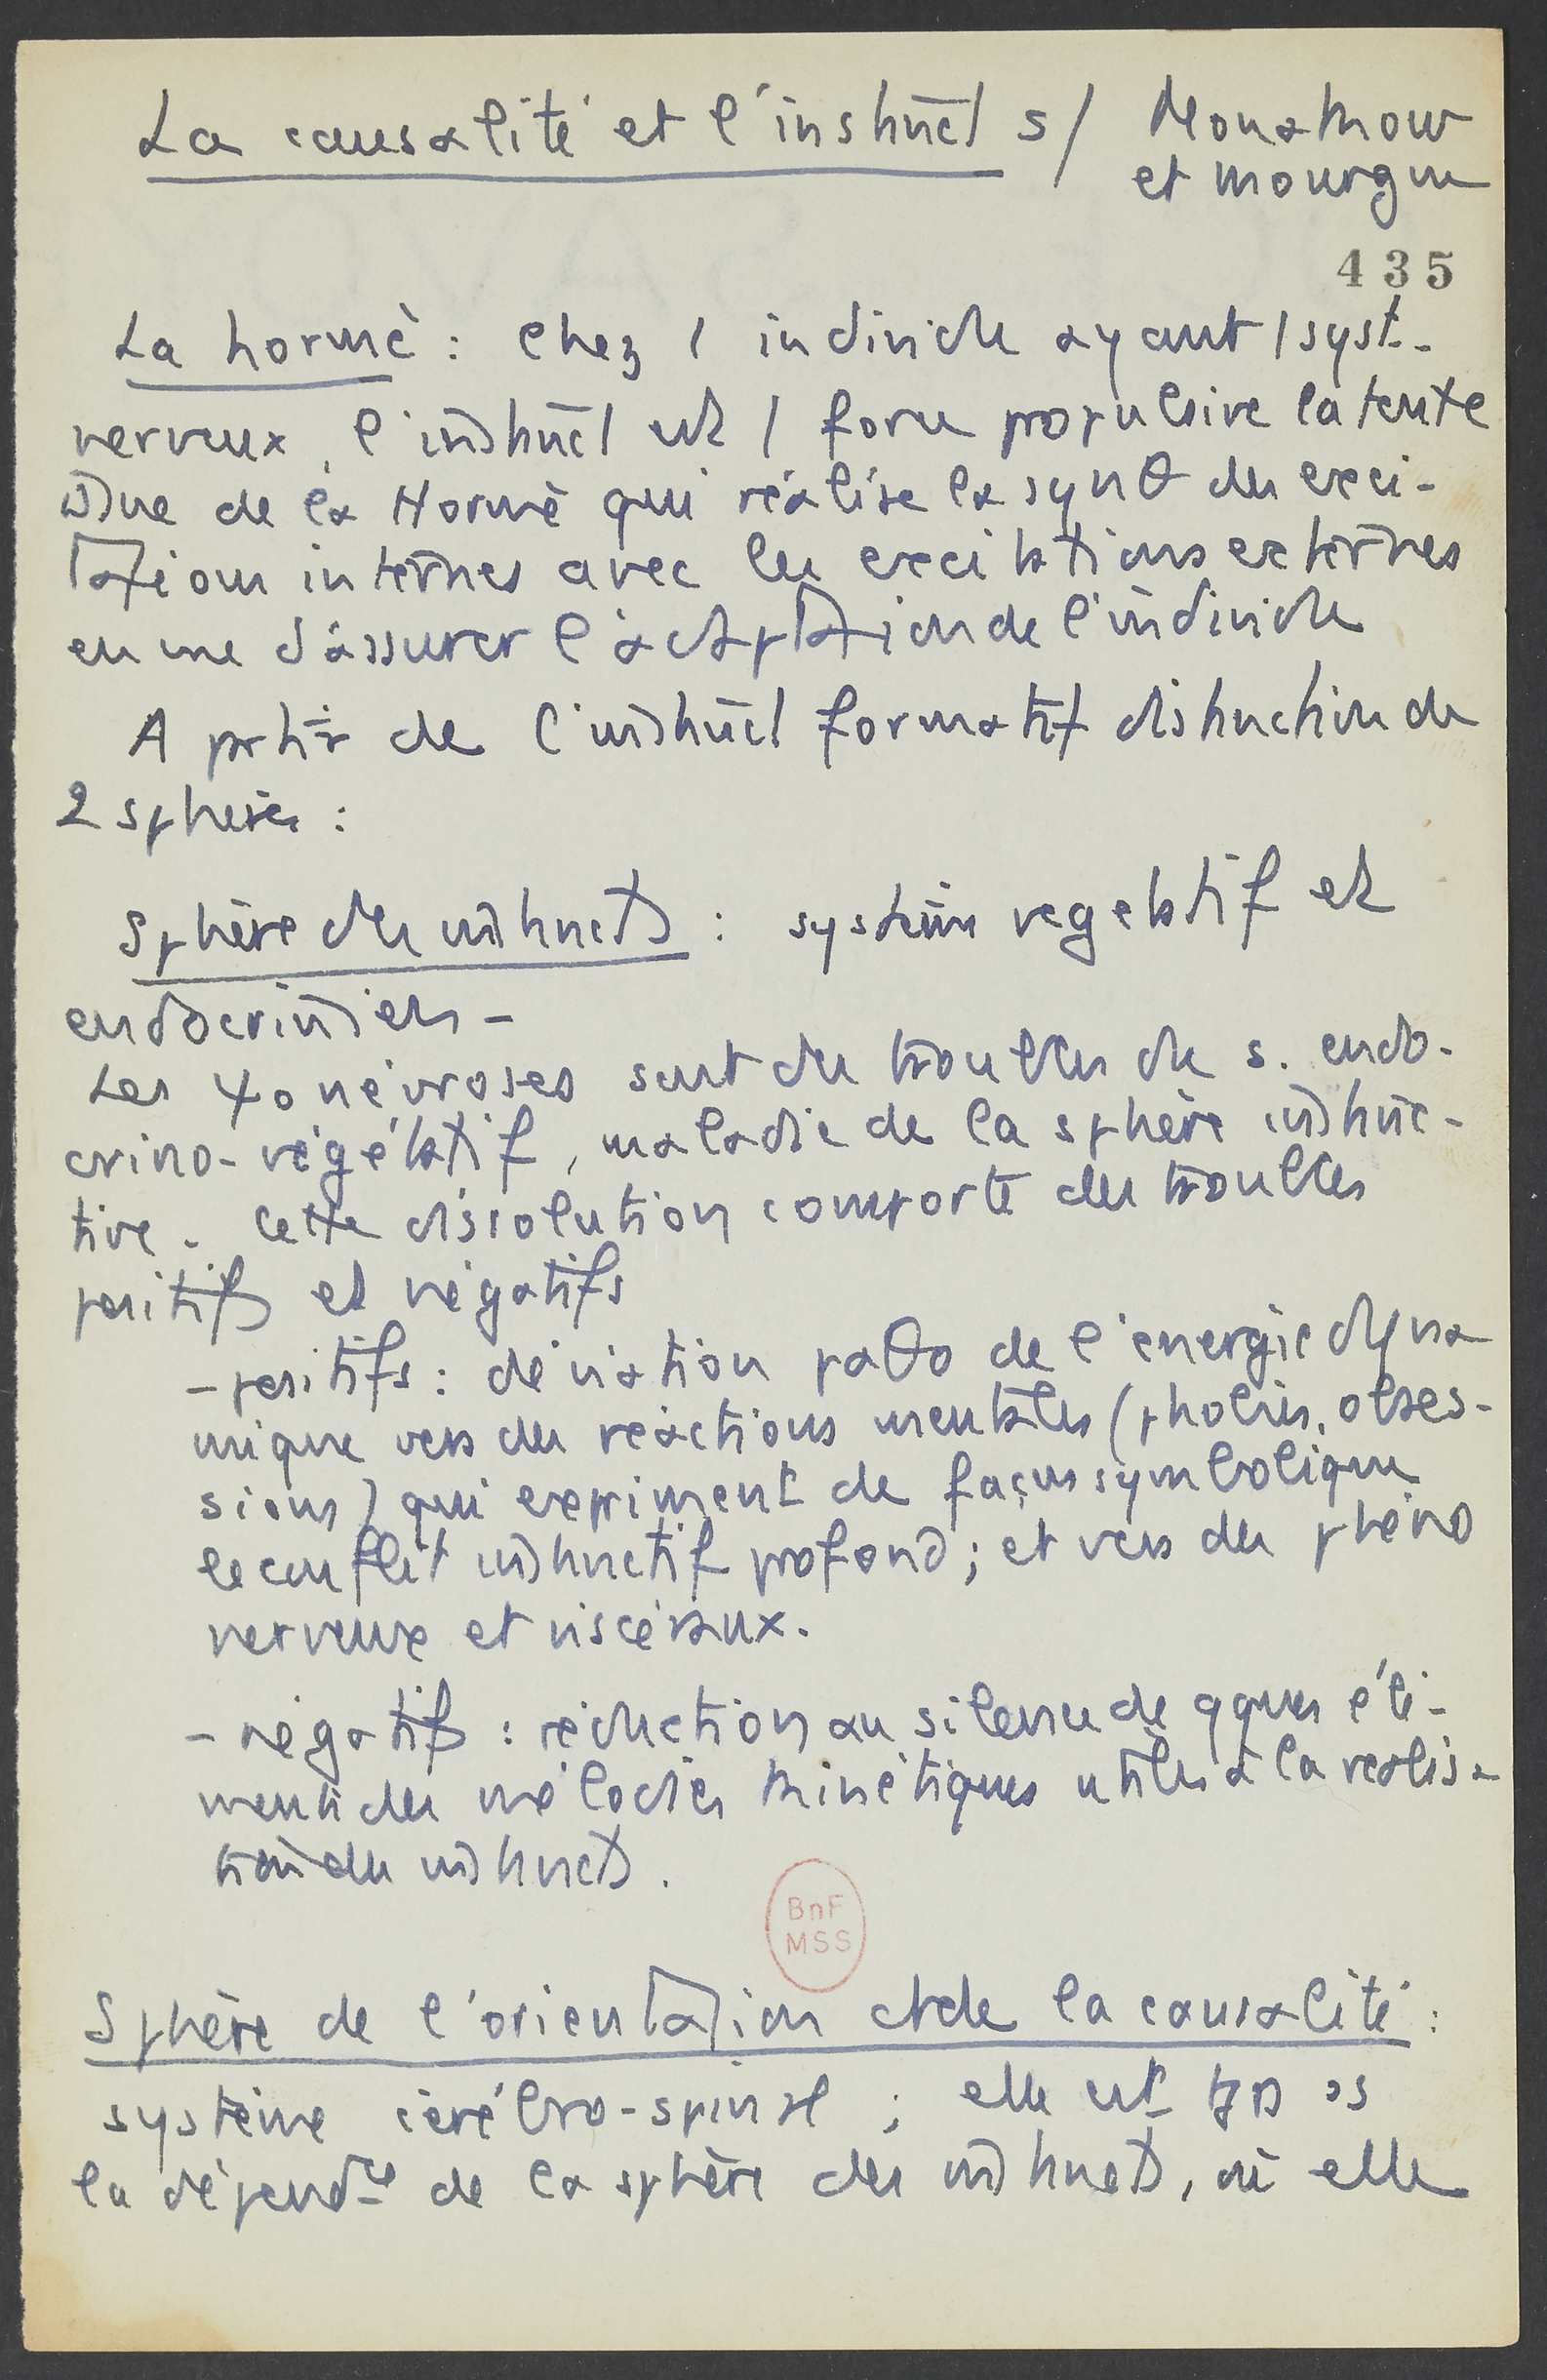 La causalité et l'instinct s/ Monakow
et Mourgue
435
La hormè : chez l individu ayant 1 syst.
nerveux, l'instinct est 1 force propulsive latente
issue de la Hormè qui réalise la synθ des exci-
tations internes avec les excitations externes
en vue d'assurer l'adaptation de l'individu
A partir de l'instinct formatif distinction de
2 sphères :
Sphère des instincts : système végétatif et
endocrinien -
Les ψonévroses sont des troubles du s. endo-
crino-végétatif, maladie de la sphère instinc-
tive. Cette dissolution comporte des troubles
positifs et négatifs
- positifs : déviation paθo de l'énergie dyna
mique vers des réactions mentales (phobies, obses-
sions) qui expriment de façon symbolique
le conflit instinctif profond ; et vers des phéno
nerveux et viscéraux.
- négatifs : réduction au silence de qques élé-
ments des mélodies kinétiques utiles à la réalisa
tion des instincts.
BnF
MSS
Sphère de l'orientation et de la causalité :
système cérébro-spinal ; elle est ds
la dépendce de la sphère des instincts, où elle